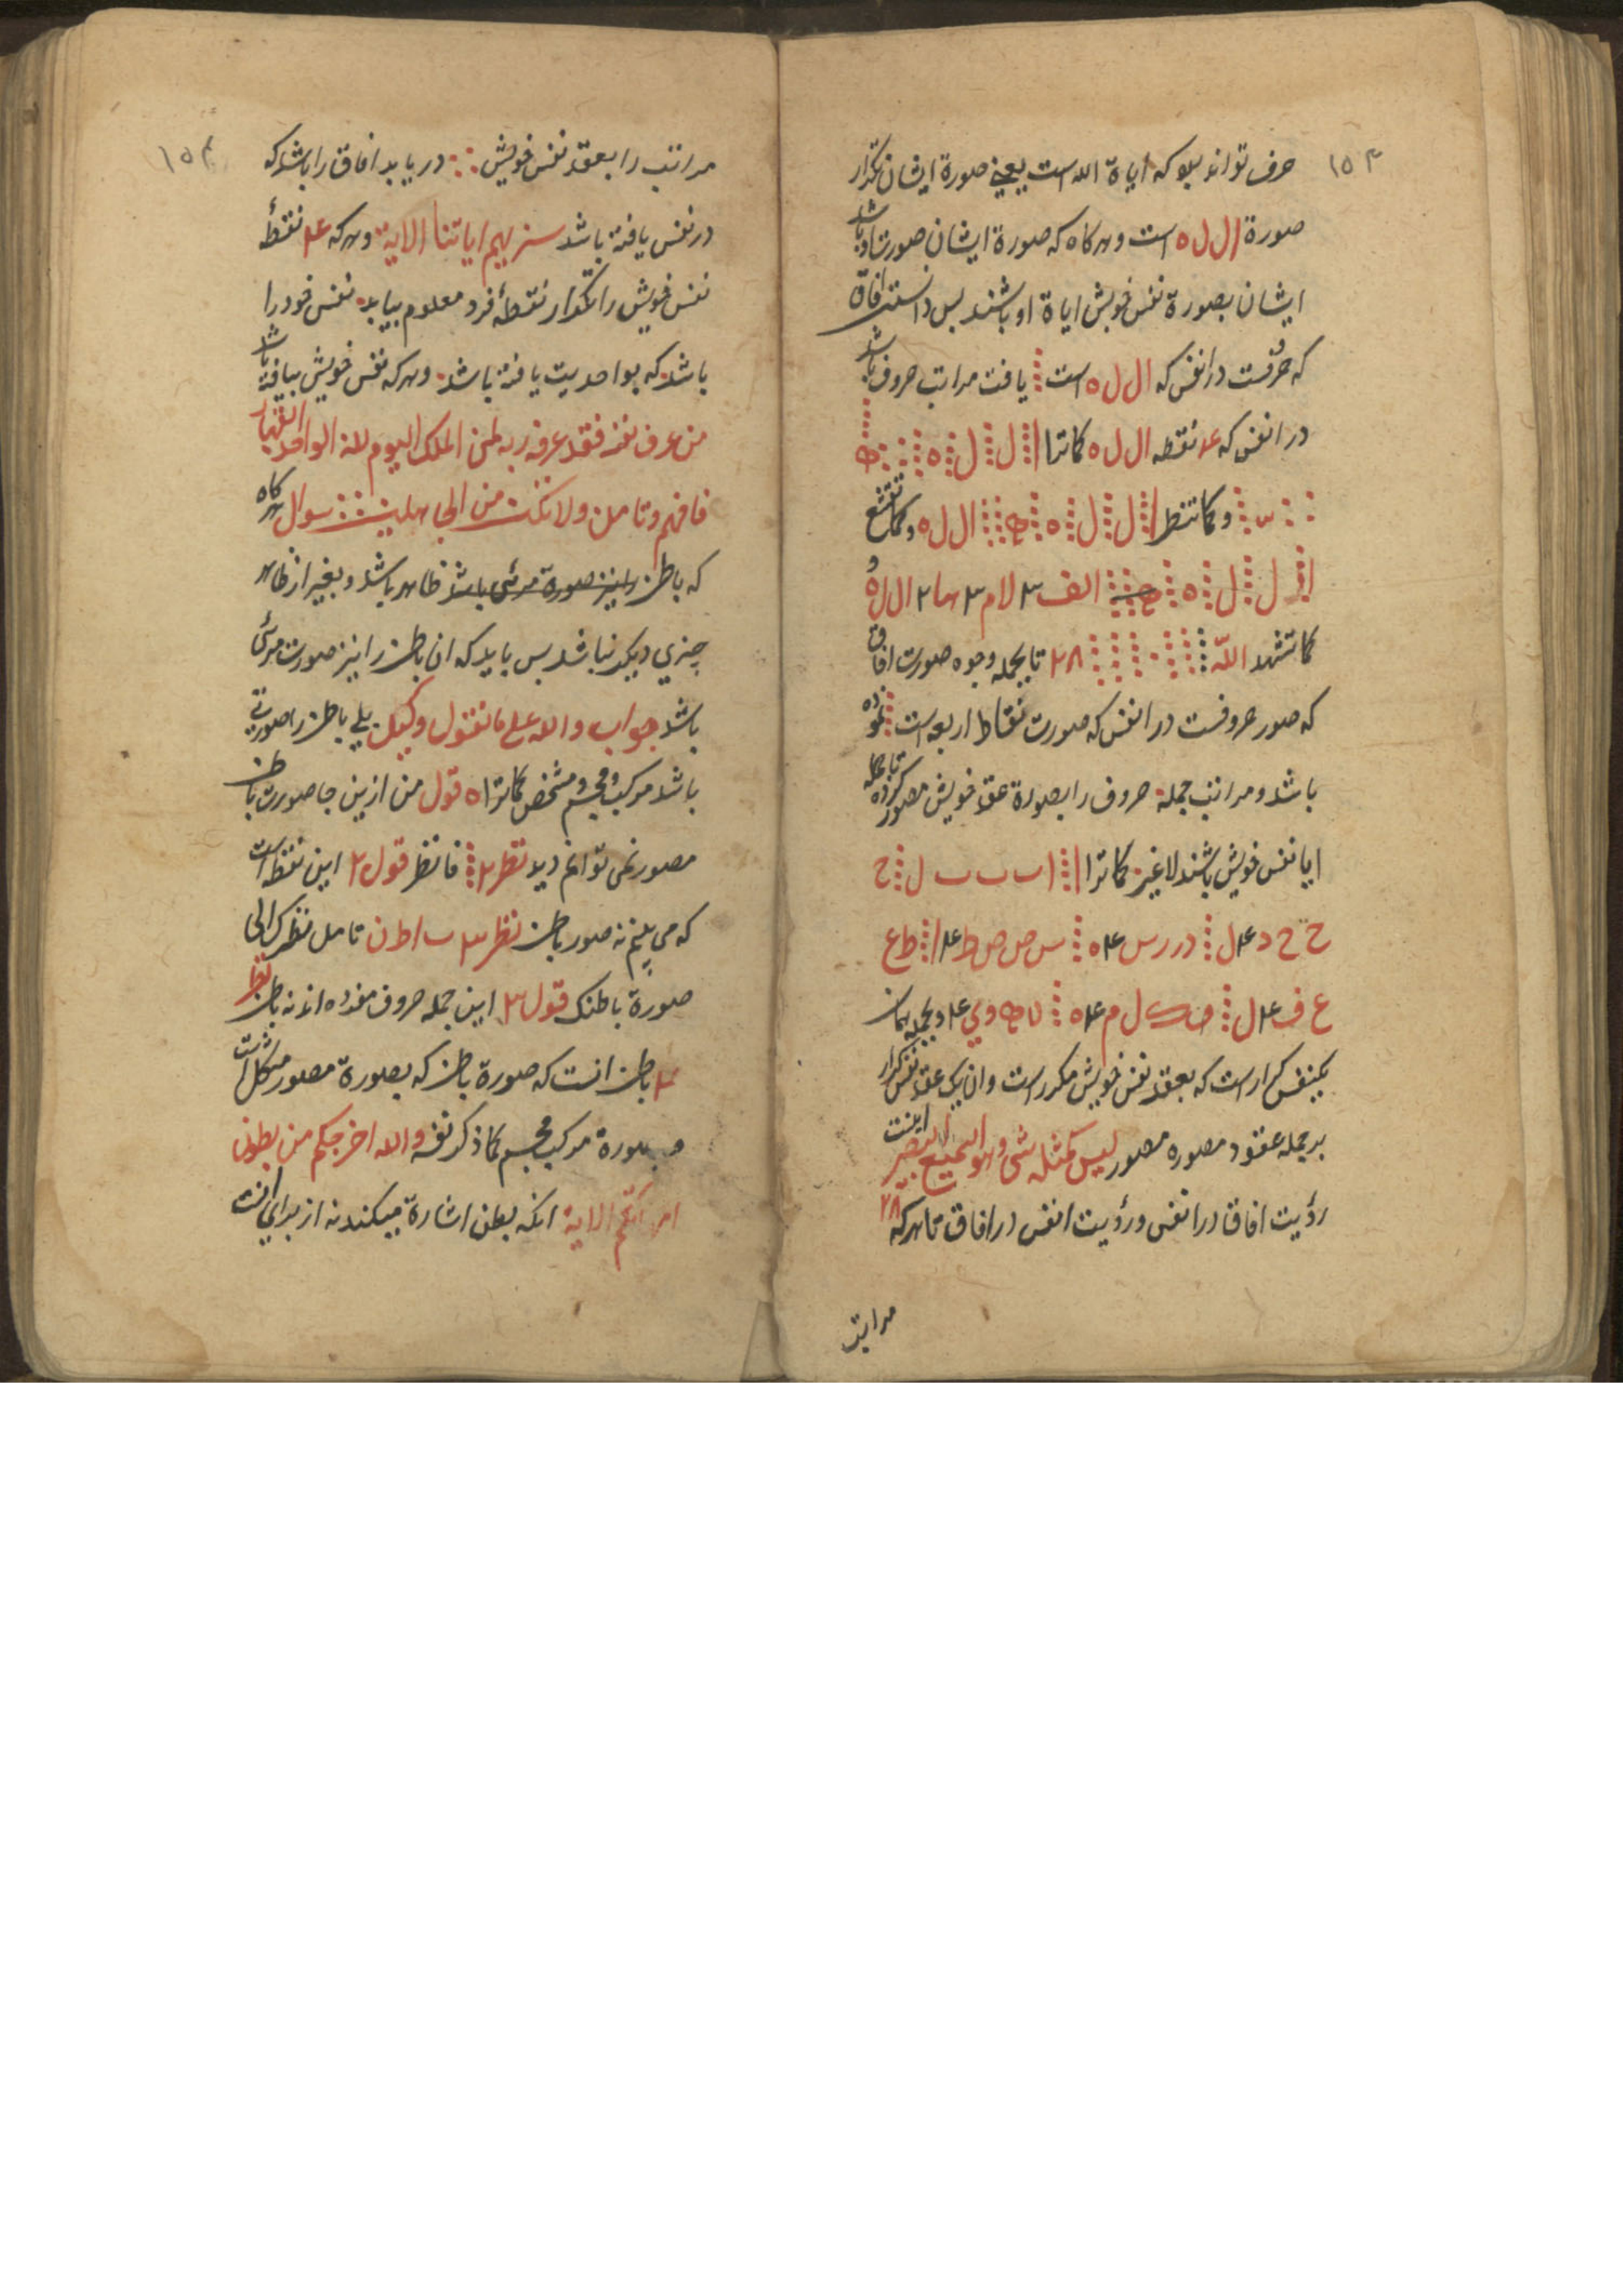 ۱۵۳
حرف تواند بود که ایاة الله است یعنی صورة ایشان تکرار
صورة ال ل ه است و هر کاه که صورة ایشان صورت او باشد
ایشان بصورة نفس خویش ایاة او باشند بس دانستن افاق
که حرفست در انفس که ال ل ه است یافت مراتب حروف باشد
در انفس که ۴ نقطه ال ل ه کماترا ا ل ل ه
و کما تنظر ا ل ل ه ال ل ه و کما
ا ل ل ه الف ۳ لام ۳ ها ۲ ال ل ه
کما تشهد اللّه ۲۸ تا بجمله وجوه صورت افاق
که صور حروفست در انفس که صورت نقاط اربعه است نموده
باشد و مراتب جمله حروف را بصورة عقد خویش مصور کرده تا جمله
ایا نفس خویش باشند لا غیر کما ترا ا ا ب ب ب ل ج
ح خ د ۴ ل ذ ر ر س ۴ ه س ص ص ط ۴ ا ط ع
ع ف ۴ ل ق ک ل م ۴ ه ن و ي ۴ و بجمله همان
یکنفس کرارست که بعقد نفس خویش مکررست و ان یک عقد نفس کرار
بر جمله عقود مصوره مصور لیس کمثله شی وهو السمیع البصیر اینست
رؤیت افاق در انفس و رؤیت انفس در افاق تا هر که ۲۸
مراتب
۱۵۴
مراتب را بعقد نفس خویش دریابد افاق را باشد که
در نفس یافته باشد سنریهم ایاتنا الایة و هر که ۴ نقطهٔ
نفس خویش را تکرار نقطهٔ فرد معلوم بیابد نفس خود را
باشد که بواحدیت یافته باشد و هر که نفس خویش بیافته باشد
من عرف نفسه فقد عرف ربه لمن الملک الیوم لله الواحد القهار
فافهم وتامل ولا تکن من الجاهلین سوال هر کاه
که باطن را نیز صورة مرئی باشد ظاهر باشد و بغیر از ظاهر
چیزي دیکر نباشد بس باید که ان باطن را نیز صورت مرئی
باشد جواب والله علی ما نقول وکیل بلی باطن را صورتی
باشد مرکب و مجسم و مشخص کما تراه قول من ازین جا صورت باطن
مصور نمی توانم دید نظر ۲ فانظر قول ۲ این نقطه است
که می بینم نه صور باطن نظر ۳ ب ا ط ن تامل نظرک الی
صورة باطنک قول ۳ این جمله حروف مفرده اند نه باطن نظر
۴ باطن انست که صورة باطن که بصورة مصور مشکل است
و بصورة مرکب مجسم کما ذکر نفسه والله اخرجکم من بطون
امهاتکم الایة انکه بطن اشارة میکند نه از برای انست